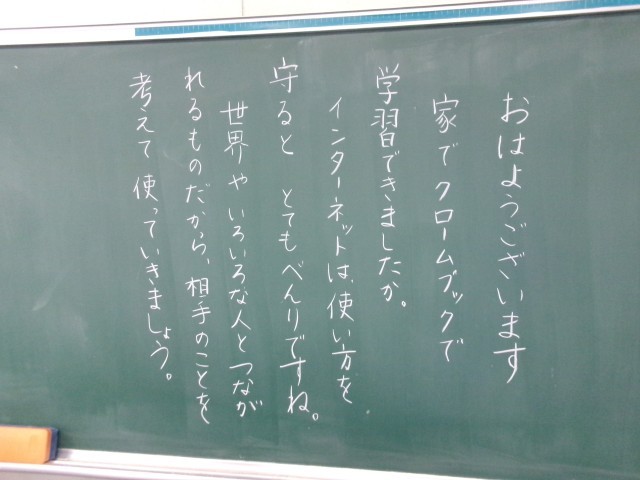 おはようございます
家でクロームブックで
学習できましたか。
インターネットは、使い方を
守ると とてもべんりですね。
世界やいろいろな人とつなが
れるものだから、相手のことを
考えて使っていきましょう。